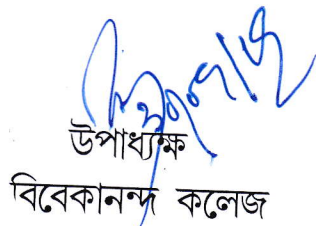 উপাধ্যক্ষ
বিবেকানন্দ কলেজ